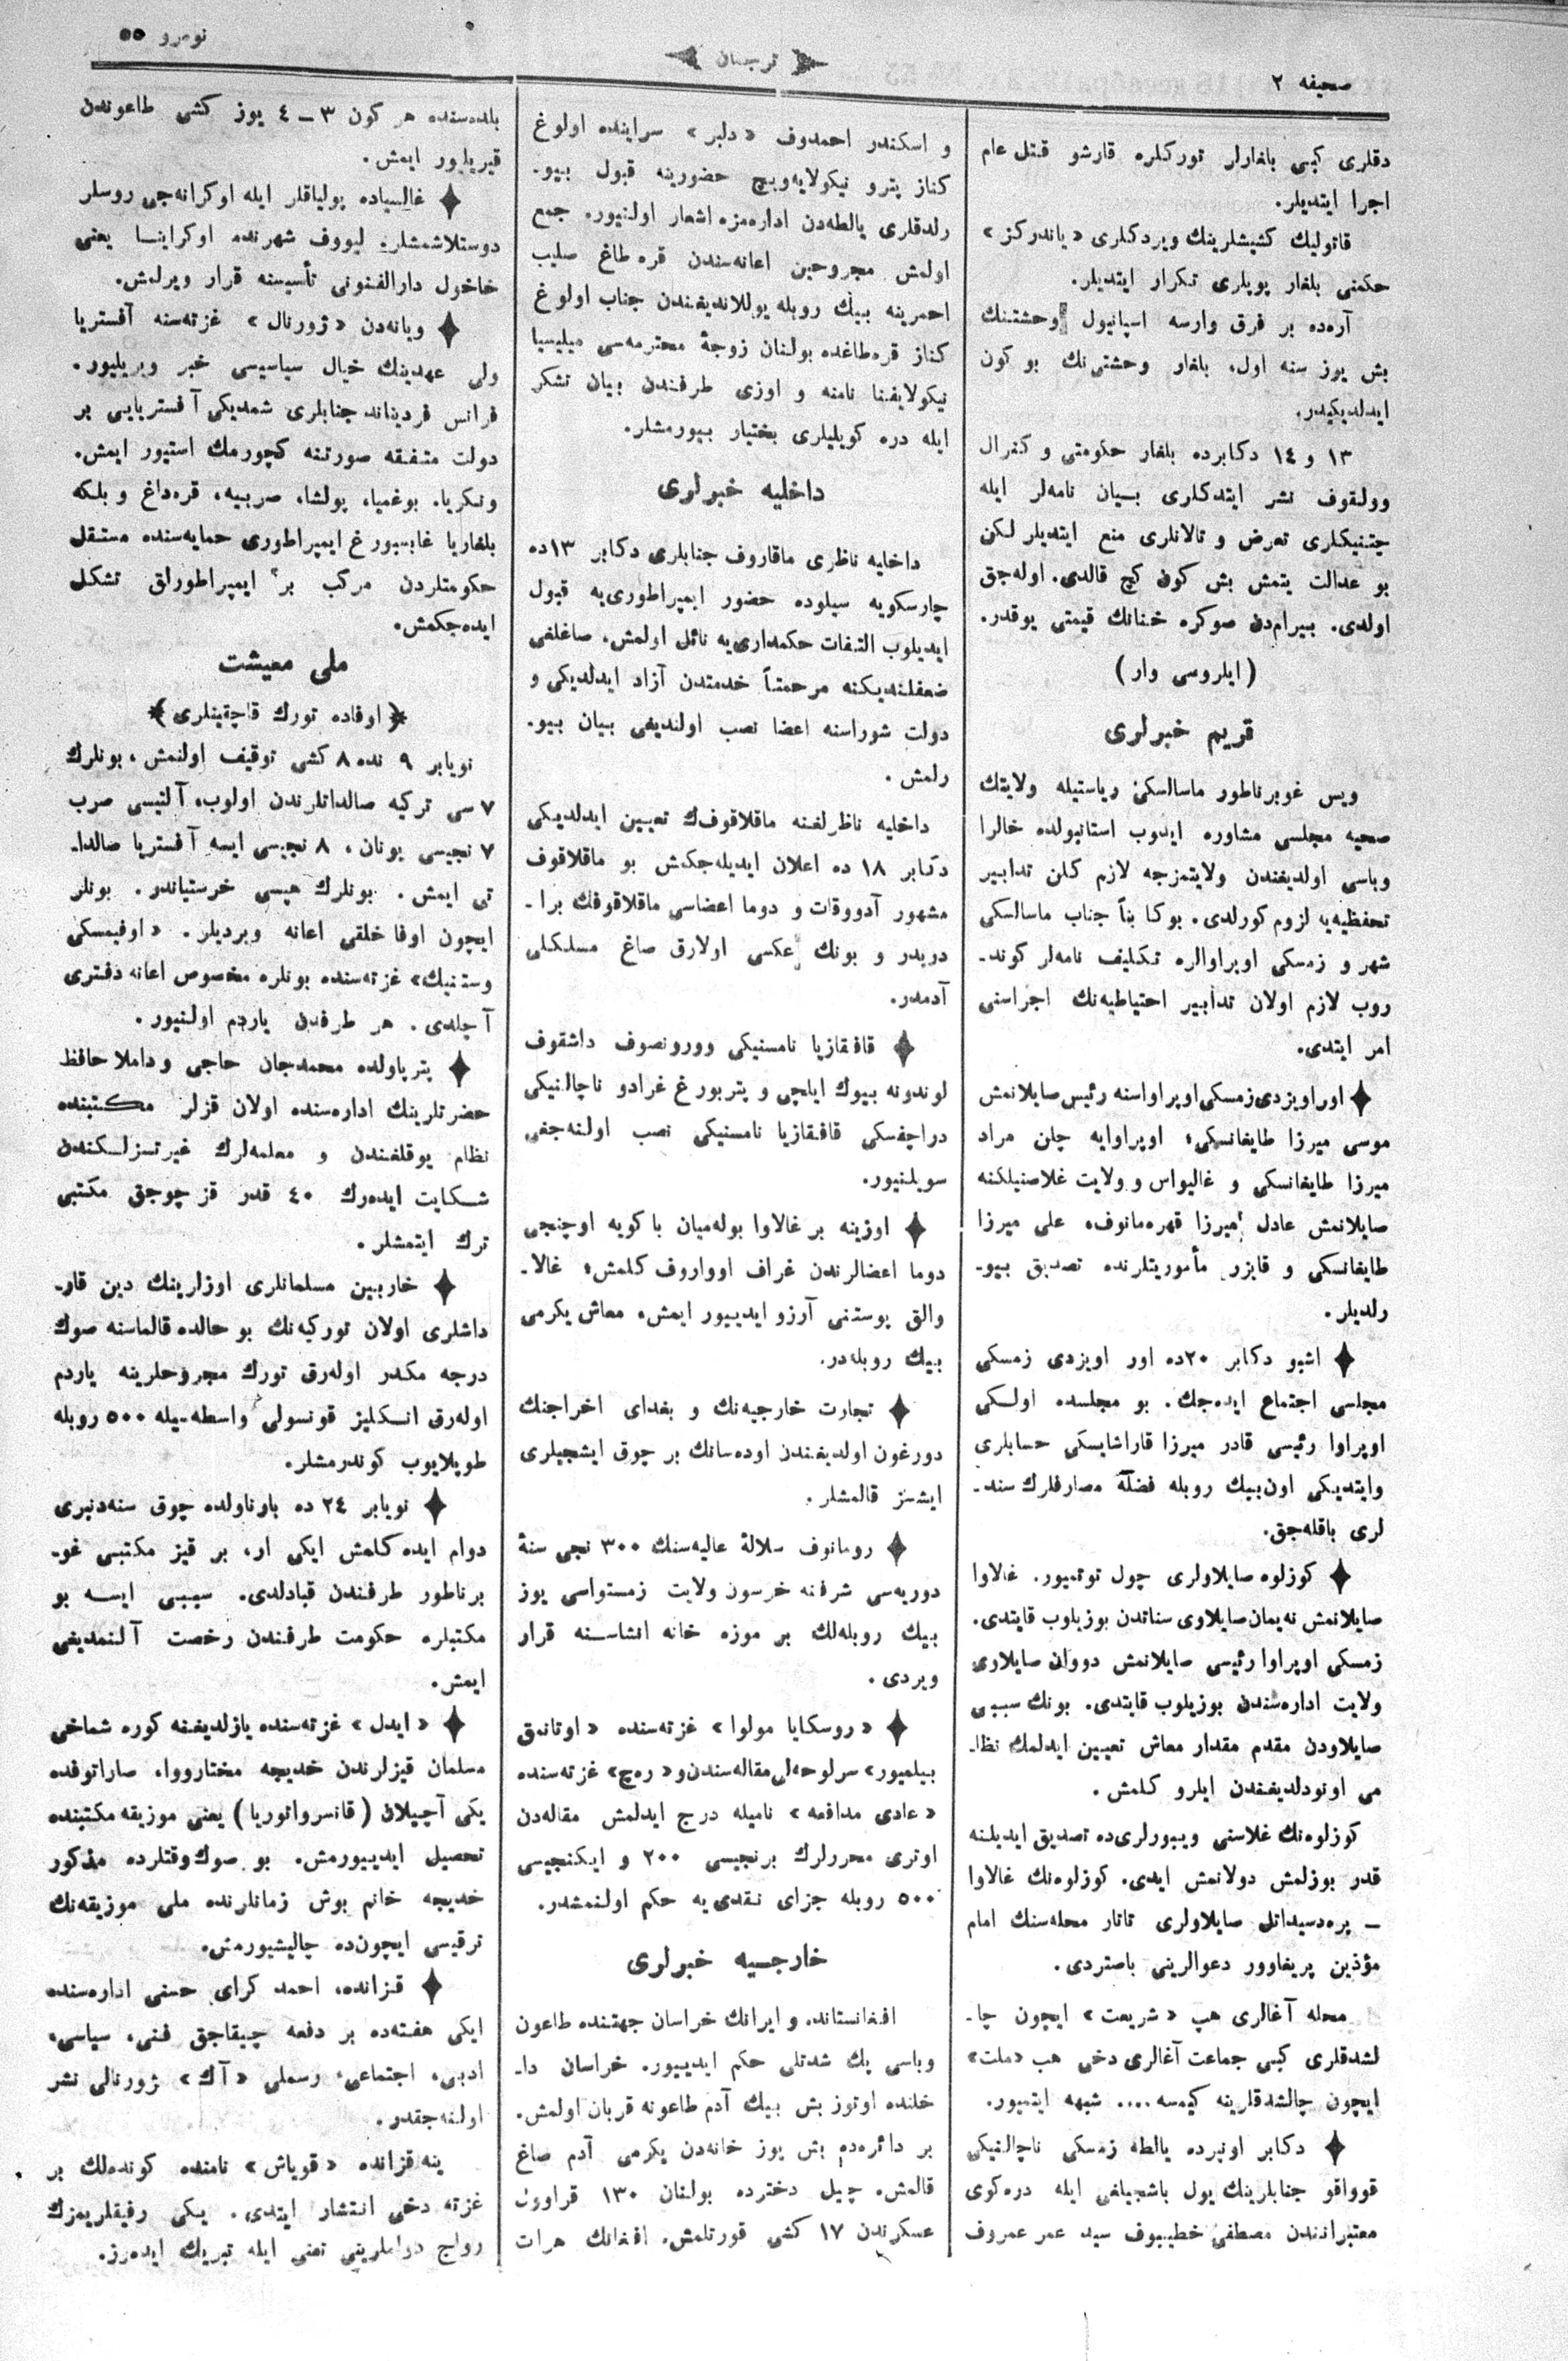 صحیفه ٢
ترجمان
نومرو ٥٥
دقلری كبی بلغارلر توركلره قارشو قتل عام
اجرا ایتدیلر.
قاتولیك كشیشلرینك ویردكلری «یاندركز»
حكمنی بلغار پوپلری تكرار ایتدیلر.
آره‌ده بر فرق وارسه اسپانیول وحشتنك
بش یوز سنه اول، بلغار وحشتی‌نك بو كون
ایدلدیكیدر.
١٣ و ١٤ دكابرده بلغار حكومتی و كنرال
وولقوف نشر ایتدكلری بیان نامه‌لر ایله
چتنیكلری تعرض و تالانلری منع ایتدیلر لكن
بو عدالت یتمش بش كون كچ قالدی. اوله‌جق
اولدی. بیرام‌دن صوكره خنانك قیمتی یوقدر.
(ایلروسی وار)
قریم خبرلری
ویس غوبرناطور ماسالسكی ریاستیله ولایتك
صحیه مجلسی مشاوره ایدوب استانبولده خالرا
وباسی اولدیغندن ولایتمزجه لازم كلن تدابیر
تحفظیه‌یه لزوم كورلدی. بوكا بنأ جناب ماسالسكی
شهر و زمسكی اوپراوالره تكلیف نامه‌لر كوند-
روب لازم اولان تدابیر احتیاطیه‌نك اجراسنی
امر ایتدی.
اور اویزدی زمسكی اوپراواسنه رئیس صایلانمش
موسی میرزا طایغانسكی؛ اوپراوایه چلن مراد
میرزا طایغانسكی و غالیواس و ولایت غلاصنیلكنه
صایلانمش عادل میرزا قهره‌مانوف، علی میرزا
طایغانسكی و قایزر مأموریتلرنده تصدیق بیو-
رلدیلر.
اشبو دكابر ٢٠ده اور اویزدی زمسكی
مجلسی اجتماع ایده‌جك. بو مجلسده اولكی
اوپراوا رئیسی قادر میرزا قاراشایسكی حسابلری
وایتدیكی اون‌بیك روبله فضله مصارفلرك سند-
لری باقله‌جق.
كوزلوه صایلاولری چول توتمیور. غالاوا
صایلانمش نه‌یمان صایلاوی سناتدن بوزیلوب قایتدی.
زمسكی اوپراوا رئیسی صایلانمش دووان صایلاری
ولایت اداره‌سندن بوزیلوب قایتدی. بونك سببی
صایلاودن مقدم مقدار معاش تعیین ایدلمك نظا-
می اونودلدیغندن ایلرو كلمش.
كوزلوه‌نك غلاسنی ویبورلری‌ده تصدیق ایدیلنه
قدر بوزلمش دولانمش ایدی. كوزلوه‌نك غالاوا
ـ پره‌دسیداتل صایلاولری تاتار محله‌سنك امام
مؤذین پریغاوور دعوالرینی باصتردی.
محله آغالری هپ «شریعت» ایچون چا-
لشدقلری كبی جماعت آغالری دخی هب «ملت»
ایچون چالشدقلرینه كیمسه .... شبهه ایتمیور.
دكابر اونبرده یالطه زمسكی ناچالنیكی
قوواقو جنابلرینك یول باشچیلغی ایله دره‌كوی
معتبراندن مصطفی خطیبوف سید عمر عمروف
و اسكندر احمدوف «دلبر» سراینده اولوغ
كناز پترو نیكولایه‌ویچ حضورینه قبول بیو-
رلدقلری یالطه‌دن اداره‌مزه اشعار اولنیور. جمع
اولمش مجروحین اعانه‌سندن قره طاغ صلیب
احمرینه بیك روبله یوللاندیغندن جناب اولوغ
كناز قره‌طاغده بولنان زوجهٔ محترمه‌سی میلیسیا
نیكولایفنا نامنه و اوزی طرفندن بیان تشكر
ایله دره كویلیلری بختیار بیورمشلر.
داخلیه خبرلری
داخلیه ناظری ماقاروف جنابلری دكابر ١٣ده
چارسكویه سیلوده حضور ایمپراطوری‌یه قبول
ایدیلوب التفات حكمداری‌یه نائل اولمش. صاغلغی
ضعفلندیكنه مرحمتاً خدمتدن آزاد ایدلدیكی و
دولت شوراسنه اعضا نصب اولندیغی بیان بیو-
رلمش.
داخلیه ناظرلغنه ماقلاقوف‌ك تعیین ایدلدیكی
دكابر ١٨ ده اعلان ایدیله‌جكمش بو ماقلاقوف
مشهور آدووقات و دوما اعضاسی ماقلاقوفك برا-
دریدر و بونك عكسی اولارق صاغ مسلكلی
آدمدر.
قافقازیا نامستنیكی وورونصوف داشقوف
لوندونه بیوك ایلچی و پتربورغ غرادو ناچالنیكی
دراچفسكی قافقازیا نامستنیكی نصب اولنه‌جغی
سویلنیور.
اوزینه بر غالاوا بوله‌میان باكویه اوچنجی
دوما اعضالرندن غراف اوواروف كلمش؛ غالا-
والق پوستنی آرزو ایدییور ایمش، معاش یكرمی
بیك روبله‌در.
تجارت خارجیه‌نك و بغدای اخراجنك
دورغون اولدیغندن اوده‌سانك بر چوق ایشجیلری
ایشسز قالمشلر.
رومانوف سلالهٔ عالیه‌سنك ٣٠٠ نجی سنهٔ
دوریه‌سی شرفنه خرسون ولایت زمستواسی یوز
بیك روبله‌لك بر موزه خانه انشاسنه قرار
ویردی.
«روسكایا مولوا» غزته‌سنده «اوتانمق
بیلمیور» سرلوحه‌لی مقاله‌سندن و «ره‌چ» غزته‌سنده
«عادی مدافعه» نامیله درج ایدلمش مقاله‌دن
اوتری محررلرك برنجیسی ٢٠٠ و ایكنجیسی
٥٠٠ روبله جزای نقدی‌یه حكم اولنمشدر.
خارجیه خبرلری
افغانستانده و ایرانك خراسان جهتنده طاعون
وباسی پك شدتلی حكم ایدییور. خراسان دا-
خلنده اوتوز بش بیك آدم طاعونه قربان اولمش.
بر دائره‌ده بش یوز خانه‌دن یكرمی آدم صاغ
قالمش. چیل دخترده بولنان ١٣٠ قراوول
عسكرندن ١٧ كشی قورتلمش. افغانك هرات
بلده‌سنده هر كون ٣ ـ ٤ یوز كشی طاعوندن
قیریلیور ایمش.
غالسیاده پولیاقلر ایله اوكرانه‌جی روسلر
دوستلاشمشلر. لیووف شهرنده اوكراینا یعنی
خاخول دارالفنونی تأسیسنه قرار ویرلمش.
ویانه‌دن «ژورنال» غزته‌سنه آفستریا
ولی عهدینك خیال سیاسیسی خبر ویریلیور.
فرانس فردیناند جنابلری شمدیكی آفستریایی بر
دولت متفقه صورتنه كچورمك استیور ایمش.
ونكریا. بوغمیا، پولشا، صربیه، قره‌داغ و بلكه
بلغاریا غابسبورغ ایمپراطوری حمایه‌سنده مستقل
حكومتلردن مركب بر ایمپراطورلق تشكل
ایده‌جكمش.
ملی معیشت
(اوفاده تورك قاچقینلری)
نویابر ٩ نده ٨ كشی توقیف اولنمش، بونلرك
٧ سی تركیه صالداتلرندن اولوب، آلتیسی صرب
٧ نجیسی یونان، ٨ نجیسی ایسه آفستریا صالدا-
تی ایمش. بونلرك هپسی خرستیاندر. بونلر
ایچون اوفا خلقی اعانه ویردیلر. «اوفیمسكی
وستنیك» غزته‌سنده بونلره مخصوص اعانه دفتری
آچلدی. هر طرفدن یاردم اولنیور.
پتریاولده محمدجان حاجی و داملا حافظ
حضرتلرینك اداره‌سنده اولان قزلر مكتبنده
نظام یوقلغندن و معلمه‌لرك غیرتسزلكندن
شكایت ایده‌رك ٤٠ قدر قز چوجق مكتبی
ترك ایتمشلر.
خاربین مسلمانلری اوزلرینك دین قار-
داشلری اولان توركیه‌نك بو حالده قالماسنه صوك
درجه مكدر اوله‌رق تورك مجروحلرینه یاردم
اوله‌رق انكلیز قونسولی واسطه‌سیله ٥٠٠ روبله
طوپلایوب كوندرمشلر.
نویابر ٢٤ ده بارناولده چوق سنه‌دنبری
دوام ایده كلمش ایكی ار، بر قیز مكتبی غو-
برناطور طرفندن قپادلدی. سببی ایسه بو
مكتبلره حكومت طرفندن رخصت آلنمدیغی
ایمش.
«ایدل» غزته‌سنده یازلدیغنه كوره شماخی
مسلمان قیزلرندن خدیجه مختارووا، صاراتوفده
یكی آچیلان (قانسرواتوریا) یعنی موزیقه مكتبنده
تحصیل ایدییورمش. بو صوك وقتلرده مذكور
خدیجه خانم بوش زمانلرنده ملی موزیقه‌نك
ترقیسی ایچون‌ده چالیشیورمش.
قزانده، احمد كرای حسنی اداره‌سنده
ایكی هفته‌ده بر دفعه چیقاجق فنی، سیاسی،
ادبی، اجتماعی، رسملی «آك» ژورنالی نشر
اولنه‌جقدر.
ینه قزانده «قویاش» نامنده كونده‌لك بر
غزته دخی انتشار ایتدی. یكی رفیقلریمزك
رواج دواملرینی تمنی ایله تبریك ایده‌رز.